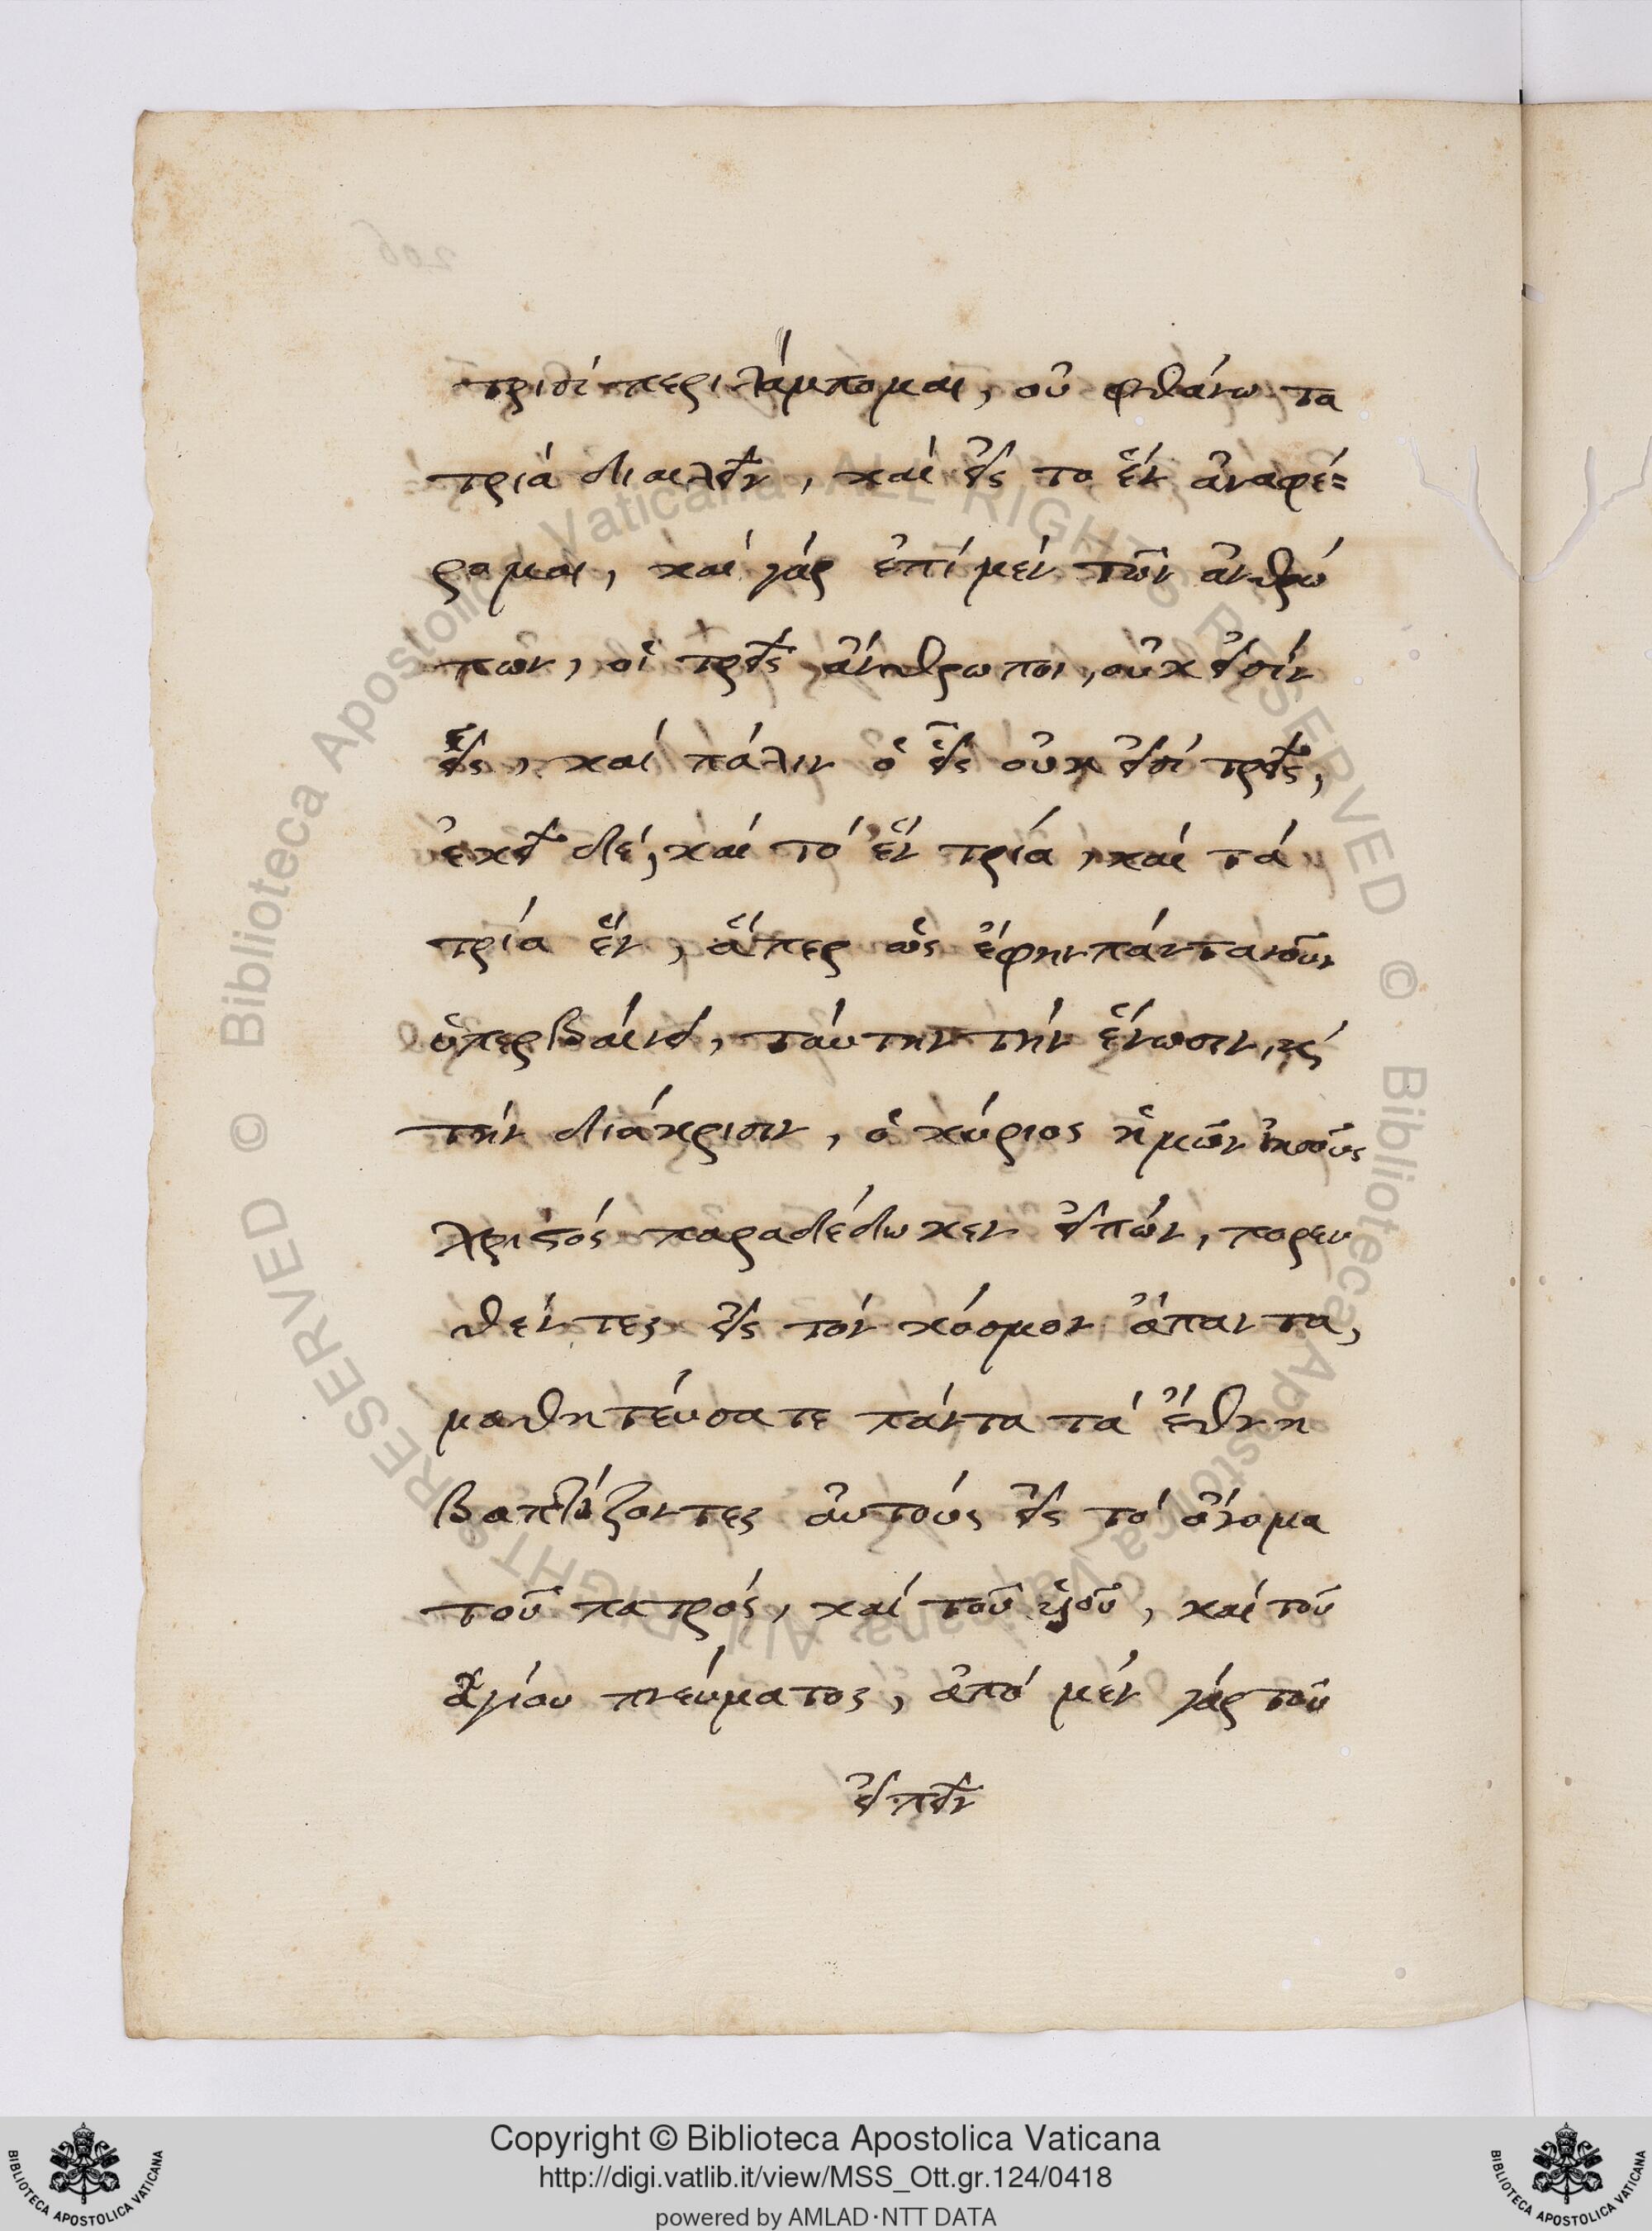 τρισί περιλάμπομαι, οὐ φθάνω τα
τριά διελεῖν, καί εἰς το ἕν ἀναφέ=
ρομαι, καί γάρ ἐπί μέν τῶν ἀνθρώ
πων, οἱ τρεῖς ἄνθρωποι, οὐκ εἰσίν
εἷς, καί πάλιν ὁ εἷς οὐκ εἰσί τρεῖς,
ἐκεῖ δέ, καί τό ἕν τρία, καί τά
τρία ἕν, ἅπερ ὡς ἔφην πάντα νοῦν
ὑπερβαίνει, ταύτην τήν ἕνωσιν, κς
τήν διάκρισιν, ὁ κύριος ἡμῶν ἰησοῦς
χριστός παραδέδωκεν εἰπών, πορευ
θέντες εἰς τόν κόσμον ἅπαντα,
μαθητεύσατε πάντα τά ἔθνη
βαπτίζοντες αὐτούς εἰς τό ὄνομα
τοῦ πατρός, καί τοῦ υἱοῦ, καί τοῦ
ἁγίου πνεύματος, ἀπό μέν γάρ τοῦ
εἰπεῖν
© Biblioteca Apostolica Vaticana ALL RIGHTS RESERVED © Biblioteca Apostolica Vaticana ALL RIGHTS RESERVED
Copyright © Biblioteca Apostolica Vaticana
http://digi.vatlib.it/view/MSS_Ott.gr.124/0418
powered by AMLAD·NTT DATA
BIBLIOTECA APOSTOLICA VATICANA
BIBLIOTECA APOSTOLICA VATICANA